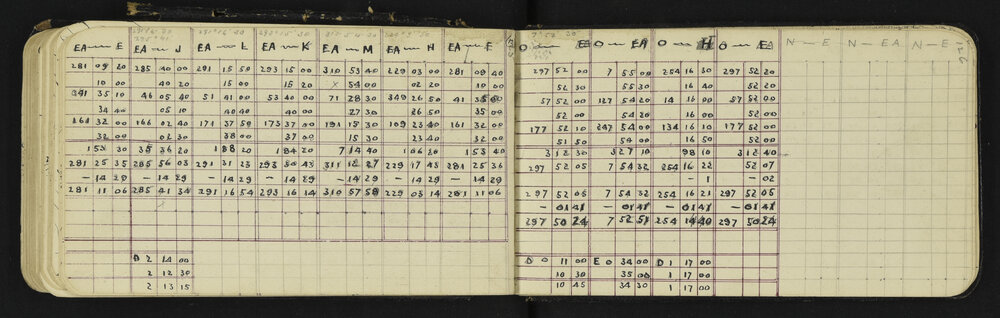 EA — E EA — J EA — L EA — K EA — M EA — H EA — E
281 09 20 285 40 00 291 15 50 293 15 00 310 53 40 229 03 00 281 09 40
10 00 40 20 15 00 15 20 × 54 00 02 20 10 00
341 35 10 46 05 40 51 41 00 53 40 00 71 28 30 349 26 50 41 35
34 40 05 10 40 40 40 00 27 30 26 50 35 00
161 32 00 166 02 40 171 37 50 173 37 00 191 15 30 109 23 40 161 32 00
32 00 02 30 38 00 37 00 15 30 23 40 32 00
153 30 35 36 20 188 20 184 20 714 40 106 20 153 40
281 25 35 285 56 03 291 31 23 293 30 43 311 12 27 229 17 43 281 25 36
— 14 29 — 14 29 — 14 29 — 14 29 — 14 29 — 14 29 — 14 29
281 11 06 285 41 34 291 16 54 293 16 14 310 57 58 229 03 14 281 11 06
D 2 14 00
2 12 30
2 13 15
O — E O — EA O — H O — EA N — E N — EA N — E
297 52 00 7 55 00 254 16 30 297 52 20
52 30 55 30 16 40 52 20
57 52 00 127 54 20 14 16 00 57 52 00
52 00 54 20 16 00 52 00
177 52 10 247 54 00 134 16 10 177 52 00
51 50 54 00 16 50 52 00
312 30 327 10 98 10 312 40
297 52 05 7 54 32 254 16 22 52 07
— 1 — 02
297 52 05 7 54 32 254 16 21 297 52 05
— 01 41 — 01 41 — 01 41 — 01 41
297 50 24 7 52 51 254 14 40 297 50 24
D 0 11 00 E 0 34 00 D 1 17 00
10 30 35 00 1 17 00
10 45 34 30 1 17 00